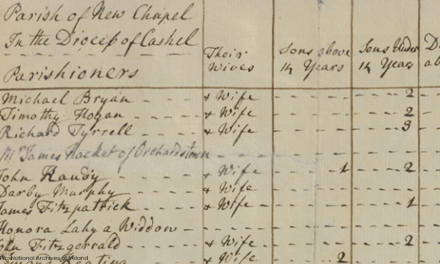 Parish of New Chapel
In the Diocess of Cashel
Parishioners
Their Wives
Sons above 14 Years
Sons Under 14 Years
D
Michael Bryan & Wife 2
Timothy Hogan & Wife 2
Richard Tyrrell & Wife 3
Mr James Hacket of Orchardstown
John & Wife 1 2
Darby Murphy & Wife
James Fitzpatrick & Wife 1
Honora Lahy a Widdow
John Fitzgerrald & Wife 2
Keating & Wife 2
National Archives of Ireland